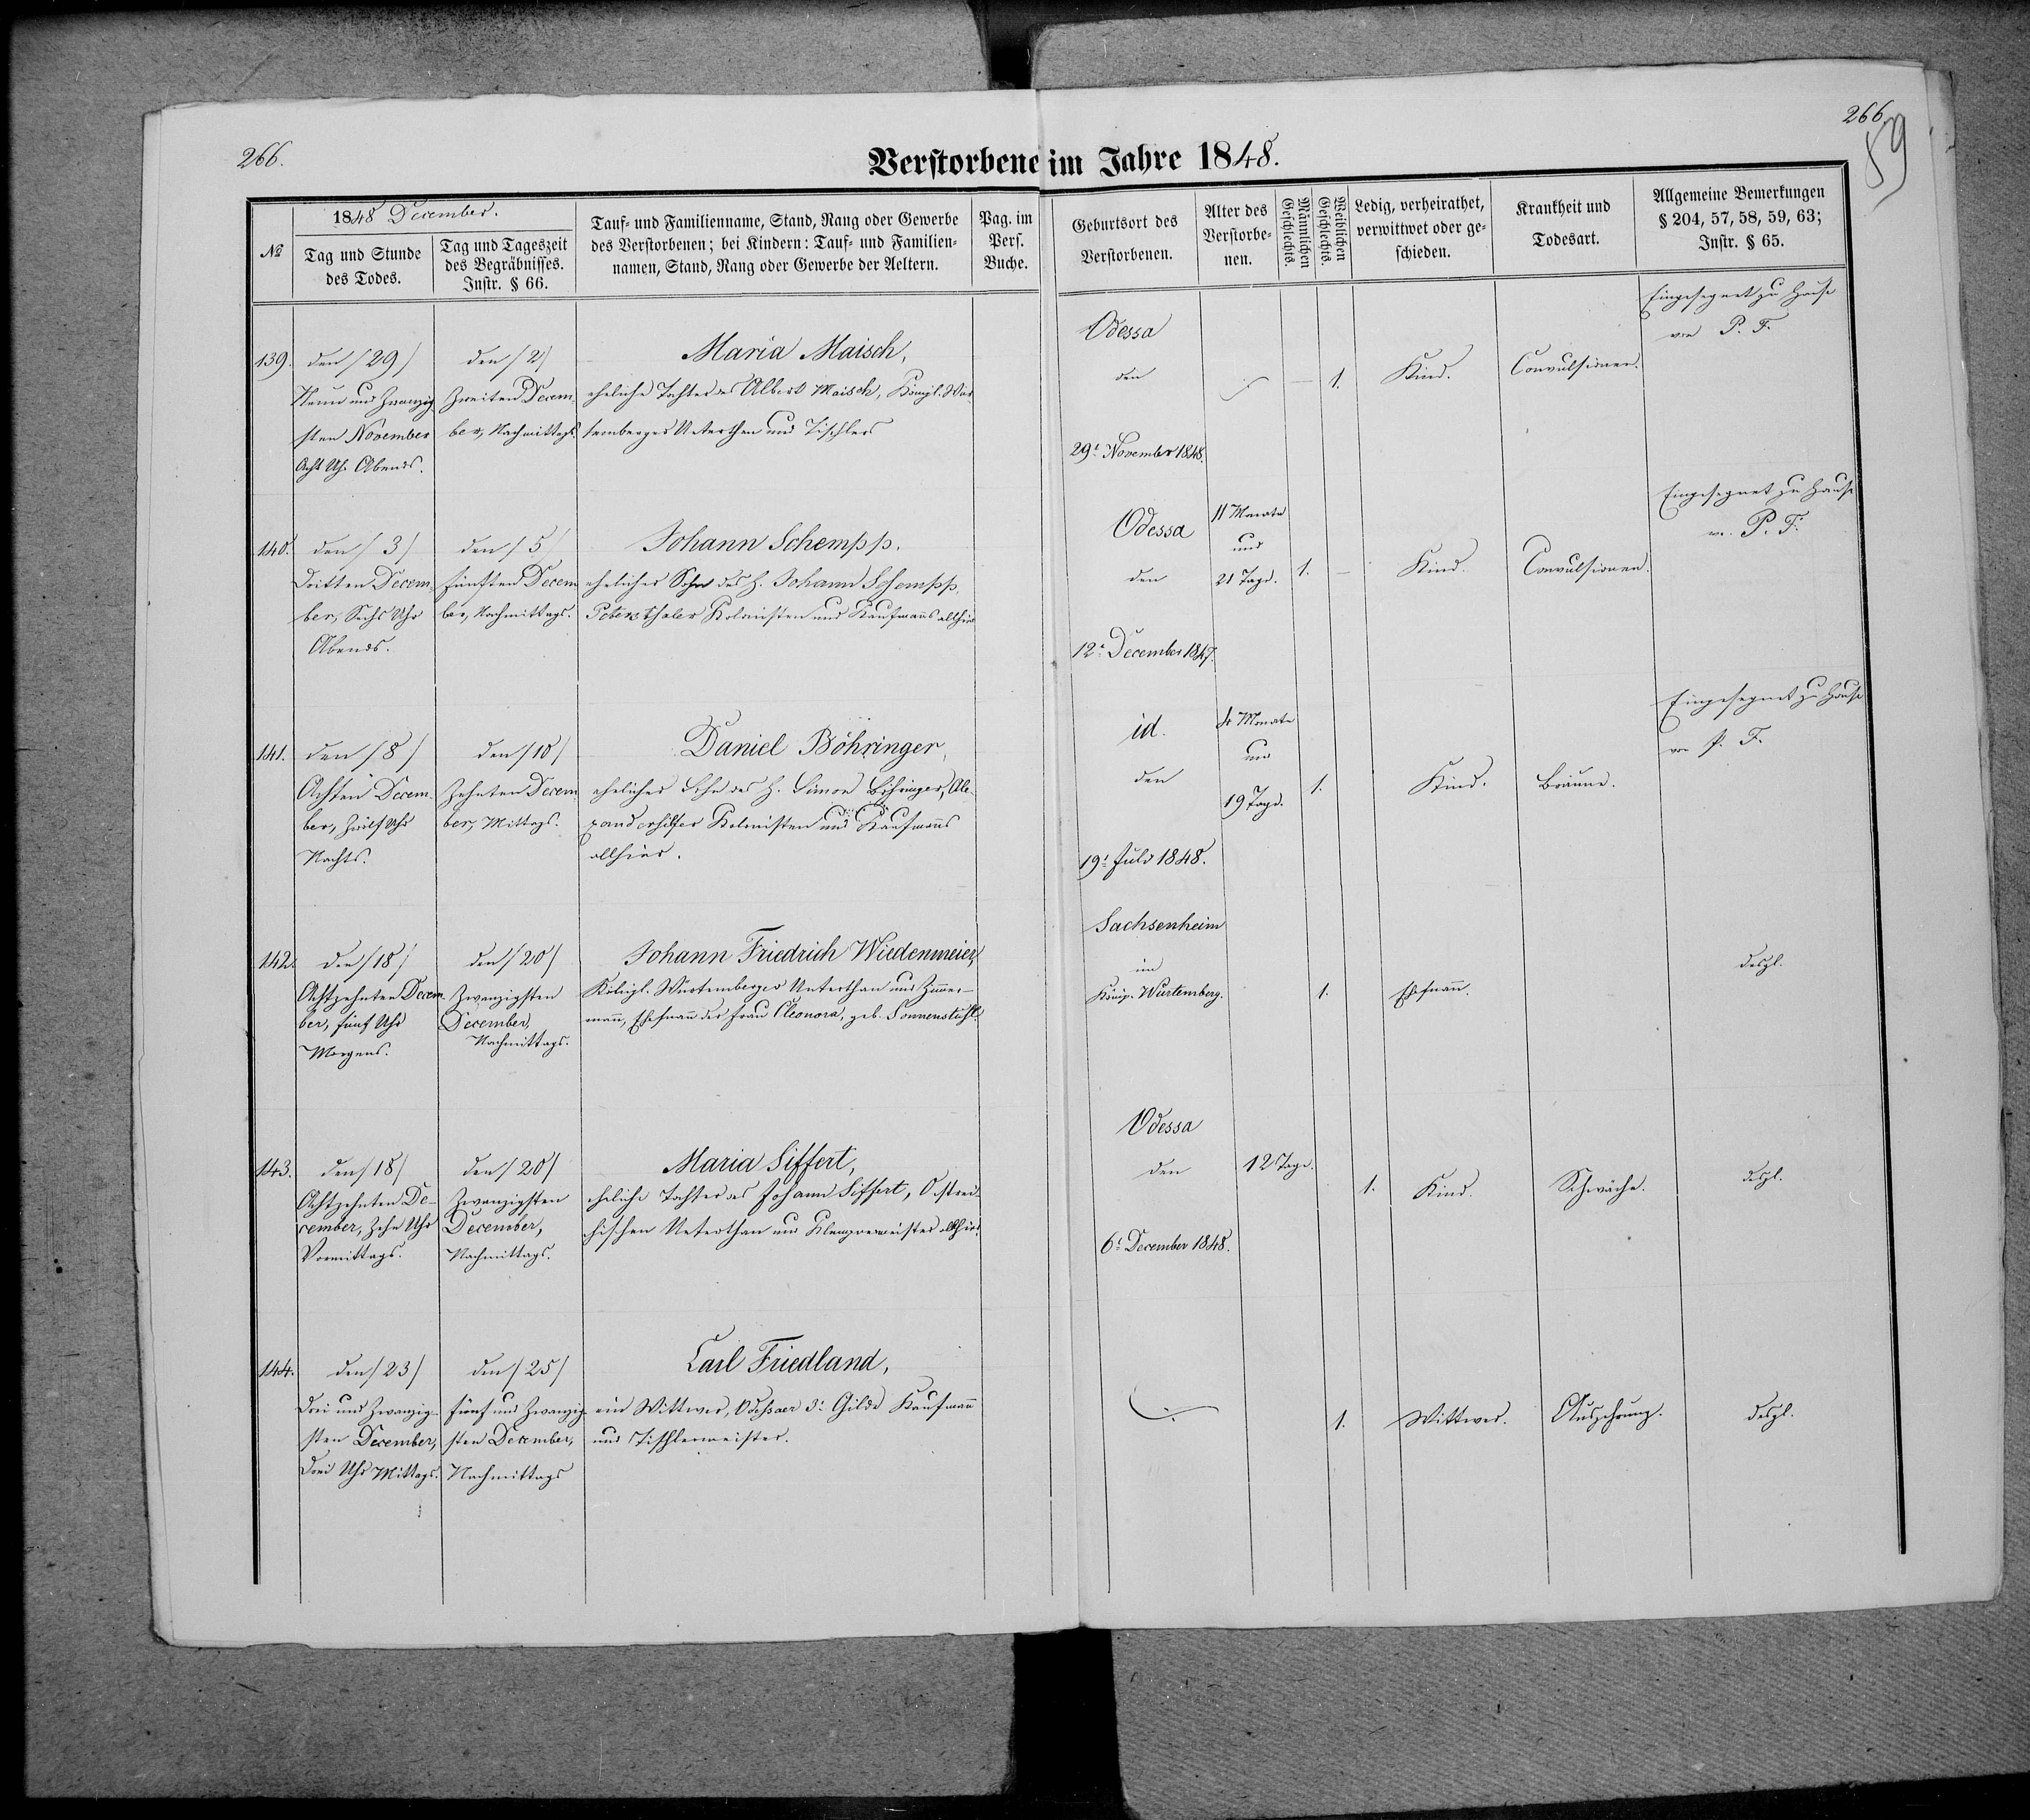 266.
266.
59
Verstorbene im Jahre 1848.
1848 December.
№
Tag und Stunde
des Todes.
Tag und Tageszeit
des Begräbnisses.
Instr. § 66.
Tauf- und Familienname, Stand, Rang oder Gewerbe
des Verstorbenen; bei Kindern: Tauf- und Familien-
namen, Stand, Rang oder Gewerbe der Aeltern.
Pag. im
Pers.
Buche.
Geburtsort des
Verstorbenen.
Alter des
Verstorbe-
nen.
Männlichen
Geschlechts.
Weiblichen
Geschlechts.
Ledig, verheirathet,
verwittwet oder ge-
schieden.
Krankheit und
Todesart.
Allgemeine Bemerkungen
§ 204, 57, 58, 59, 63;
Instr. § 65.
139.
den /29/
Neun und Zwanzig
sten November
Acht Uhr Abends.
den /2/
Zweiten Decem-
ber, Nachmittags.
Maria Maisch,
eheliche Tochter des Albert Maisch, Königl. Wür-
temberger Unterthan und Tischlers
Odessa
den
29t November 1848.
1.
Kind.
Convulsionen.
Eingesegnet zu Hause
von P. F.
140.
den /3/
Dritten Decem-
ber, Sechs Uhr
Abends.
den /5/
fünften Decem-
ber, Nachmittags.
Johann Schempp.
ehelicher Sohn des H. Johann Schempp,
Petersthaler Kolonisten und Kaufmanns allhier
Odessa
den
12t December 1847.
11 Monate
und
21 Tage.
1.
Kind.
Convulsionen.
Eingesegnet zu Hause
von P. F.
141.
den /8/
Achten Decem-
ber, Zwölf Uhr
Nachts.
den /10/
Zehnten Decem-
ber, Mittags.
Daniel Böhringer,
ehelicher Sohn des H. Simon Böhringer, Ale-
xanderhilfer Kolonisten und Kaufmanns
allhier.
id.
den
19t Juli 1848.
4 Monate
und
19 Tage.
1.
Kind.
Bräune.
Eingesegnet zu Hause
von P. F.
142.
den /18/
Achtzehnten Decem-
ber, fünf Uhr
Morgens.
den /20/
Zwanzigsten
December,
Nachmittags.
Johann Friedrich Wiedenmeier,
Königl. Würtemberger Unterthan und Zimmer-
mann, Ehemann der Frau Eleonora, geb. Sonnenstuhl.
Sachsenheim
im
Königr. Würtemberg.
1.
Ehemann.
desgl.
143.
den /18/
Achtzehnten De-
cember, Zehn Uhr
Vormittags.
den /20/
Zwanzigsten
December,
Nachmittags.
Maria Siffert,
eheliche Tochter des Johann Siffert, Oestrei-
chischen Unterthan und Klempnermeister allhier.
Odessa
den
6t December 1848.
12 Tage.
1.
Kind.
Schwäche.
desgl.
144.
den /23/
Drei und Zwanzig-
sten December,
Drei Uhr Mittags.
den /25/
fünf und Zwanzig-
sten December,
Nachmittags
Carl Friedland,
ein Wittwer, Odessaer 3t Gilde Kaufmann
und Tischlermeister.
1.
Wittwer.
Auszehrung.
desgl.